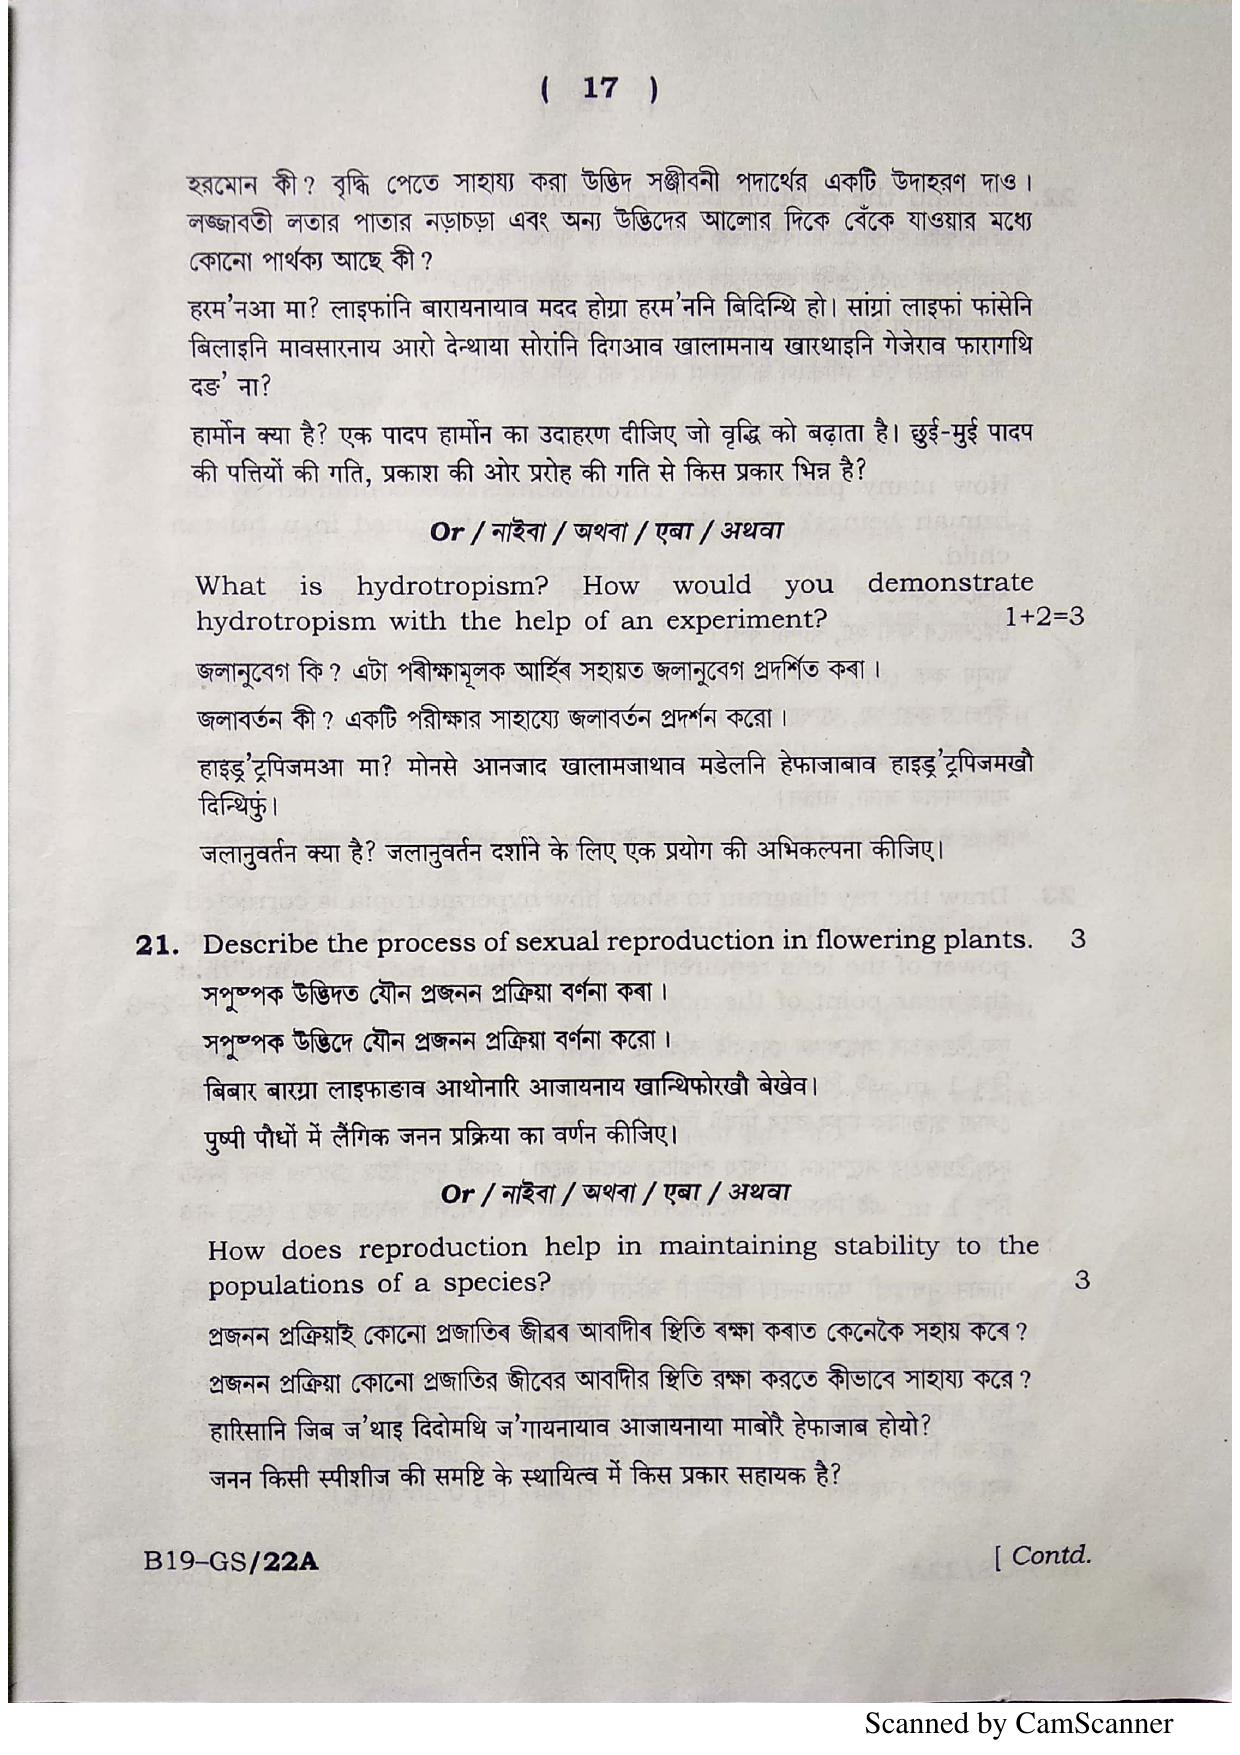 ( 17 )
হরমোন কী? বৃদ্ধি পেতে সাহায্য করা উদ্ভিদ সঞ্জীবনী পদার্থের একটি উদাহরণ দাও।
লজ্জাবতী লতার পাতার নড়াচড়া এবং অন্য উদ্ভিদের আলোর দিকে বেঁকে যাওয়ার মধ্যে
কোনো পার্থক্য আছে কী?
हरम'नआ मा? लाइफांनि बारायनायाव मदद होग्रा हरम'ननि बिदिन्थि हो। सांग्रां लाइफां फांसेनि
बिलाइनि मावसारनाय आरो देन्थाया सोरांनि दिगआव खालामनाय खारथाइनि गेजेराव फारागथि
दङ' ना?
हार्मोन क्या है? एक पादप हार्मोन का उदाहरण दीजिए जो वृद्धि को बढ़ाता है। छुई-मुई पादप
की पत्तियों की गति, प्रकाश की ओर प्ररोह की गति से किस प्रकार भिन्न है?
Or / নাইবা / অথবা / एबा / अथवा
What is hydrotropism? How would you demonstrate
hydrotropism with the help of an experiment? 1+2=3
জলানুবেগ কি? এটা পৰীক্ষামূলক আৰ্হিৰ সহায়ত জলানুবেগ প্ৰদৰ্শিত কৰা।
জলাবর্তন কী? একটি পরীক্ষার সাহায্যে জলাবর্তন প্রদর্শন করো।
हाइड्र'ट्रपिजमआ मा? मोनसे आनजाद खालामजाथाव मडेलनि हेफाजाबाव हाइड्र'ट्रपिजमखौ
दिन्थिफुं।
जलानुवर्तन क्या है? जलानुवर्तन दर्शाने के लिए एक प्रयोग की अभिकल्पना कीजिए।
21. Describe the process of sexual reproduction in flowering plants. 3
সপুষ্পক উদ্ভিদত যৌন প্ৰজনন প্ৰক্ৰিয়া বৰ্ণনা কৰা।
সপুষ্পক উদ্ভিদে যৌন প্রজনন প্রক্রিয়া বর্ণনা করো।
बिबार बारग्रा लाइफाङाव आथोनारि आजायनाय खान्थिफोरखौ बेखेव।
पुष्पी पौधों में लैंगिक जनन प्रक्रिया का वर्णन कीजिए।
Or / নাইবা / অথবা / एबा / अथवा
How does reproduction help in maintaining stability to the
populations of a species? 3
প্ৰজনন প্ৰক্ৰিয়াই কোনো প্ৰজাতিৰ জীৱৰ আবাদীৰ স্থিতি ৰক্ষা কৰাত কেনেকৈ সহায় কৰে?
প্রজনন প্রক্রিয়া কোনো প্রজাতির জীবের আবাদীর স্থিতি রক্ষা করতে কীভাবে সাহায্য করে?
हारिसानि जिब ज'थाइ दिदोमथि ज'गायनायाव आजायनाया माबोरै हेफाजाब होयो?
जनन किसी स्पीशीज की समष्टि के स्थायित्व में किस प्रकार सहायक है?
B19–GS/22A [ Contd.
Scanned by CamScanner